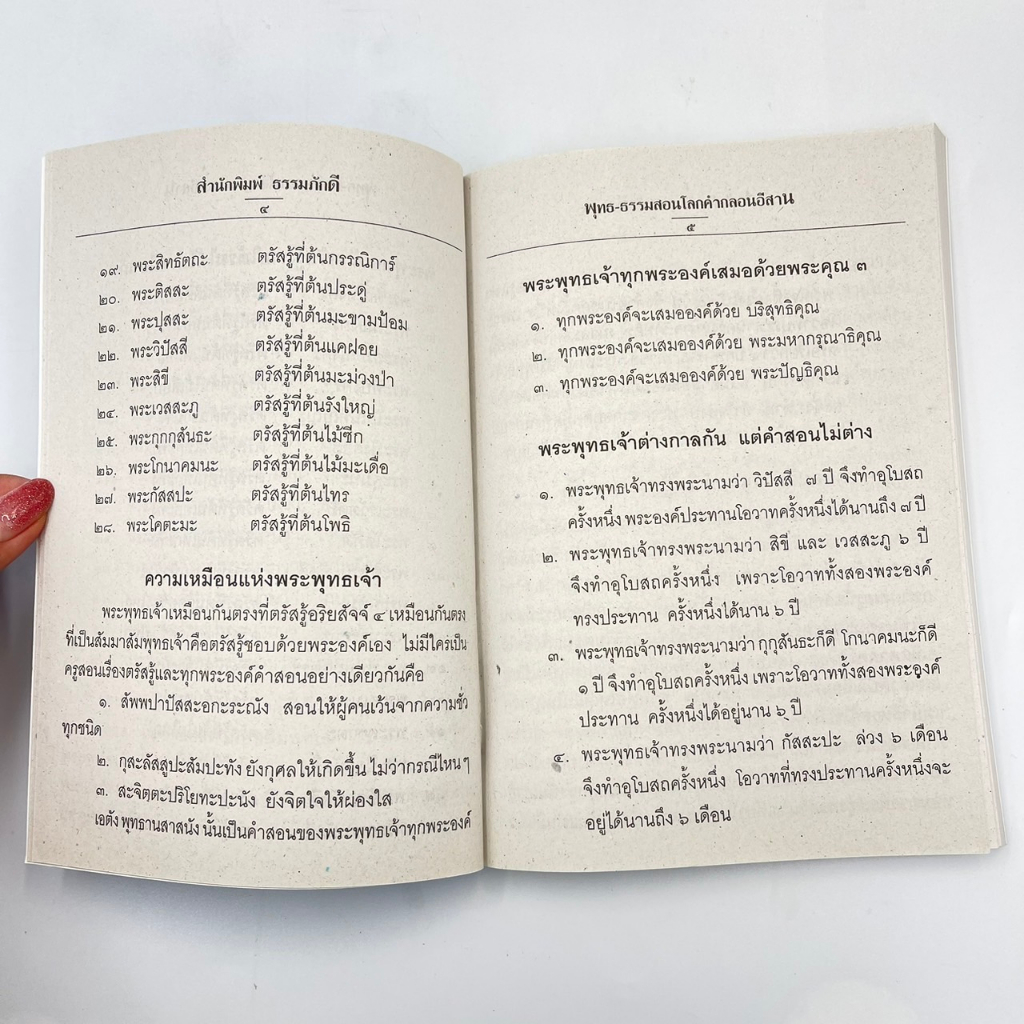 สำนักพิมพ์ ธรรมภักดี
๔
๑๙. พระสิทธัตถะ ตรัสรู้ที่ต้นกรรณิการ์
๒๐. พระติสสะ ตรัสรู้ที่ต้นประดู่
๒๑. พระปุสสะ ตรัสรู้ที่ต้นมะขามป้อม
๒๒. พระวิปัสสี ตรัสรู้ที่ต้นแคฝอย
๒๓. พระสิขี ตรัสรู้ที่ต้นมะม่วงป่า
๒๔. พระเวสสะภู ตรัสรู้ที่ต้นรังใหญ่
๒๕. พระกุกกุสันธะ ตรัสรู้ที่ต้นไม้ซึก
๒๖. พระโกนาคมนะ ตรัสรู้ที่ต้นไม้มะเดื่อ
๒๗. พระกัสสปะ ตรัสรู้ที่ต้นไทร
๒๘. พระโคตะมะ ตรัสรู้ที่ต้นโพธิ
ความเหมือนแห่งพระพุทธเจ้า
พระพุทธเจ้าเหมือนกันตรงที่ตรัสรู้อริยสัจจ์ ๔ เหมือนกันตรง
ที่เป็นสัมมาสัมพุทธเจ้าคือตรัสรู้ชอบด้วยพระองค์เอง ไม่มีใครเป็น
ครูสอนเรื่องตรัสรู้และทุกพระองค์คำสอนอย่างเดียวกันคือ
๑. สัพพปาปัสสะอกะระณัง สอนให้ผู้คนเว้นจากความชั่ว
ทุกชนิด
๒. กุสะลัสสูปะสัมปะทัง ยังกุศลให้เกิดขึ้น ไม่ว่ากรณีไหน ๆ
๓. สะจิตตะปริโยทะปะนัง ยังจิตใจให้ผ่องใส
เอตัง พุทธานสาสนัง นั้นเป็นคำสอนของพระพุทธเจ้าทุกพระองค์
พุทธ-ธรรมสอนโลกคำกลอนอีสาน
๕
พระพุทธเจ้าทุกพระองค์เสมอด้วยพระคุณ ๓
๑. ทุกพระองค์จะเสมอองค์ด้วย บริสุทธิคุณ
๒. ทุกพระองค์จะเสมอองค์ด้วย พระมหากรุณาธิคุณ
๓. ทุกพระองค์จะเสมอองค์ด้วย พระปัญธิคุณ
พระพุทธเจ้าต่างกาลกัน แต่คำสอนไม่ต่าง
๑. พระพุทธเจ้าทรงพระนามว่า วิปัสสี ๗ ปี จึงทำอุโบสถ
ครั้งหนึ่ง พระองค์ประทานโอวาทครั้งหนึ่งได้นานถึง ๗ ปี
๒. พระพุทธเจ้าทรงพระนามว่า สิขี และ เวสสะภู ๖ ปี
จึงทำอุโบสถครั้งหนึ่ง เพราะโอวาททั้งสองพระองค์
ทรงประทาน ครั้งหนึ่งได้นาน ๖ ปี
๓. พระพุทธเจ้าทรงพระนามว่า กุกุสันธะก็ดี โกนาคมนะก็ดี
๑ ปี จึงทำอุโบสถครั้งหนึ่ง เพราะโอวาททั้งสองพระองค์
ประทาน ครั้งหนึ่งได้อยู่นาน ๖ ปี
๔. พระพุทธเจ้าทรงพระนามว่า กัสสะปะ ล่วง ๖ เดือน
จึงทำอุโบสถครั้งหนึ่ง โอวาทที่ทรงประทานครั้งหนึ่งจะ
อยู่ได้นานถึง ๖ เดือน